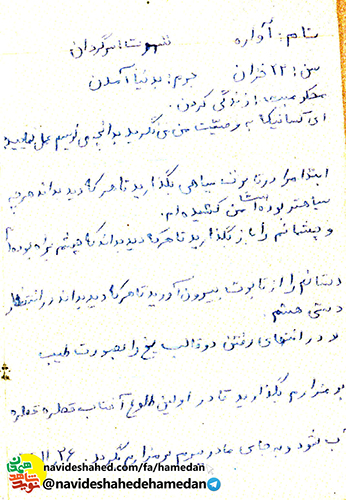 نام: آواره شهرت: سرگردان
سن: ۲۲ خزان جرم: بدنیا آمدن
محکومیت: از زندگی کردن.
ای کسانیکه به وصیت من می‌نگرید بدانچه می‌نویسم عمل نمایید
ابتدا مرا در تابوت سیاهی بگذارید تا هر که دید بداند هر چه
سیاهتر بوده است من کشیده‌ام.
و چشمانم را باز بگذارید تا هر که دید بداند که چشم براه بوده‌ام
دستانم را از تابوت بیرون آورید تا هر که دید بداند در انتظار
دستی هستم
و در انتهای رفتن دو قالب یخ را بصورت صلیب
بر مزارم بگذارید تا در اولین طلوع آفتاب قطره قطره
آب شود و به جای مادرم بر مزارم بگرید.
navideshahed.com/fa/hamedan
@navideshahedehamedan